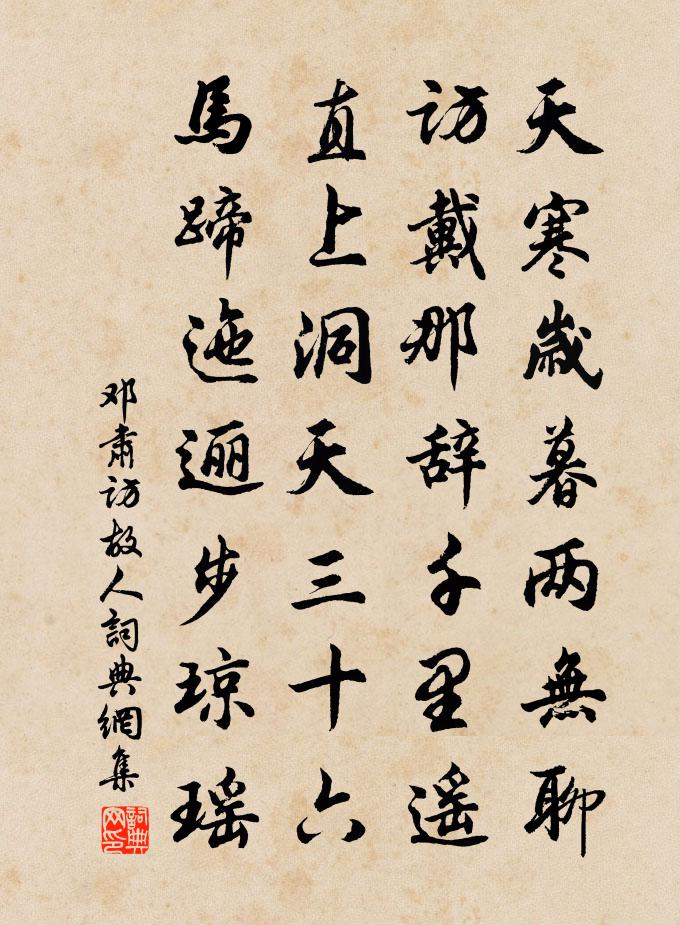 天寒歲暮两無聊
訪戴那辞千里遥
直上洞天三十六
馬蹄迤逦步琼瑶
邓肅訪故人詞典網集
詞典网印